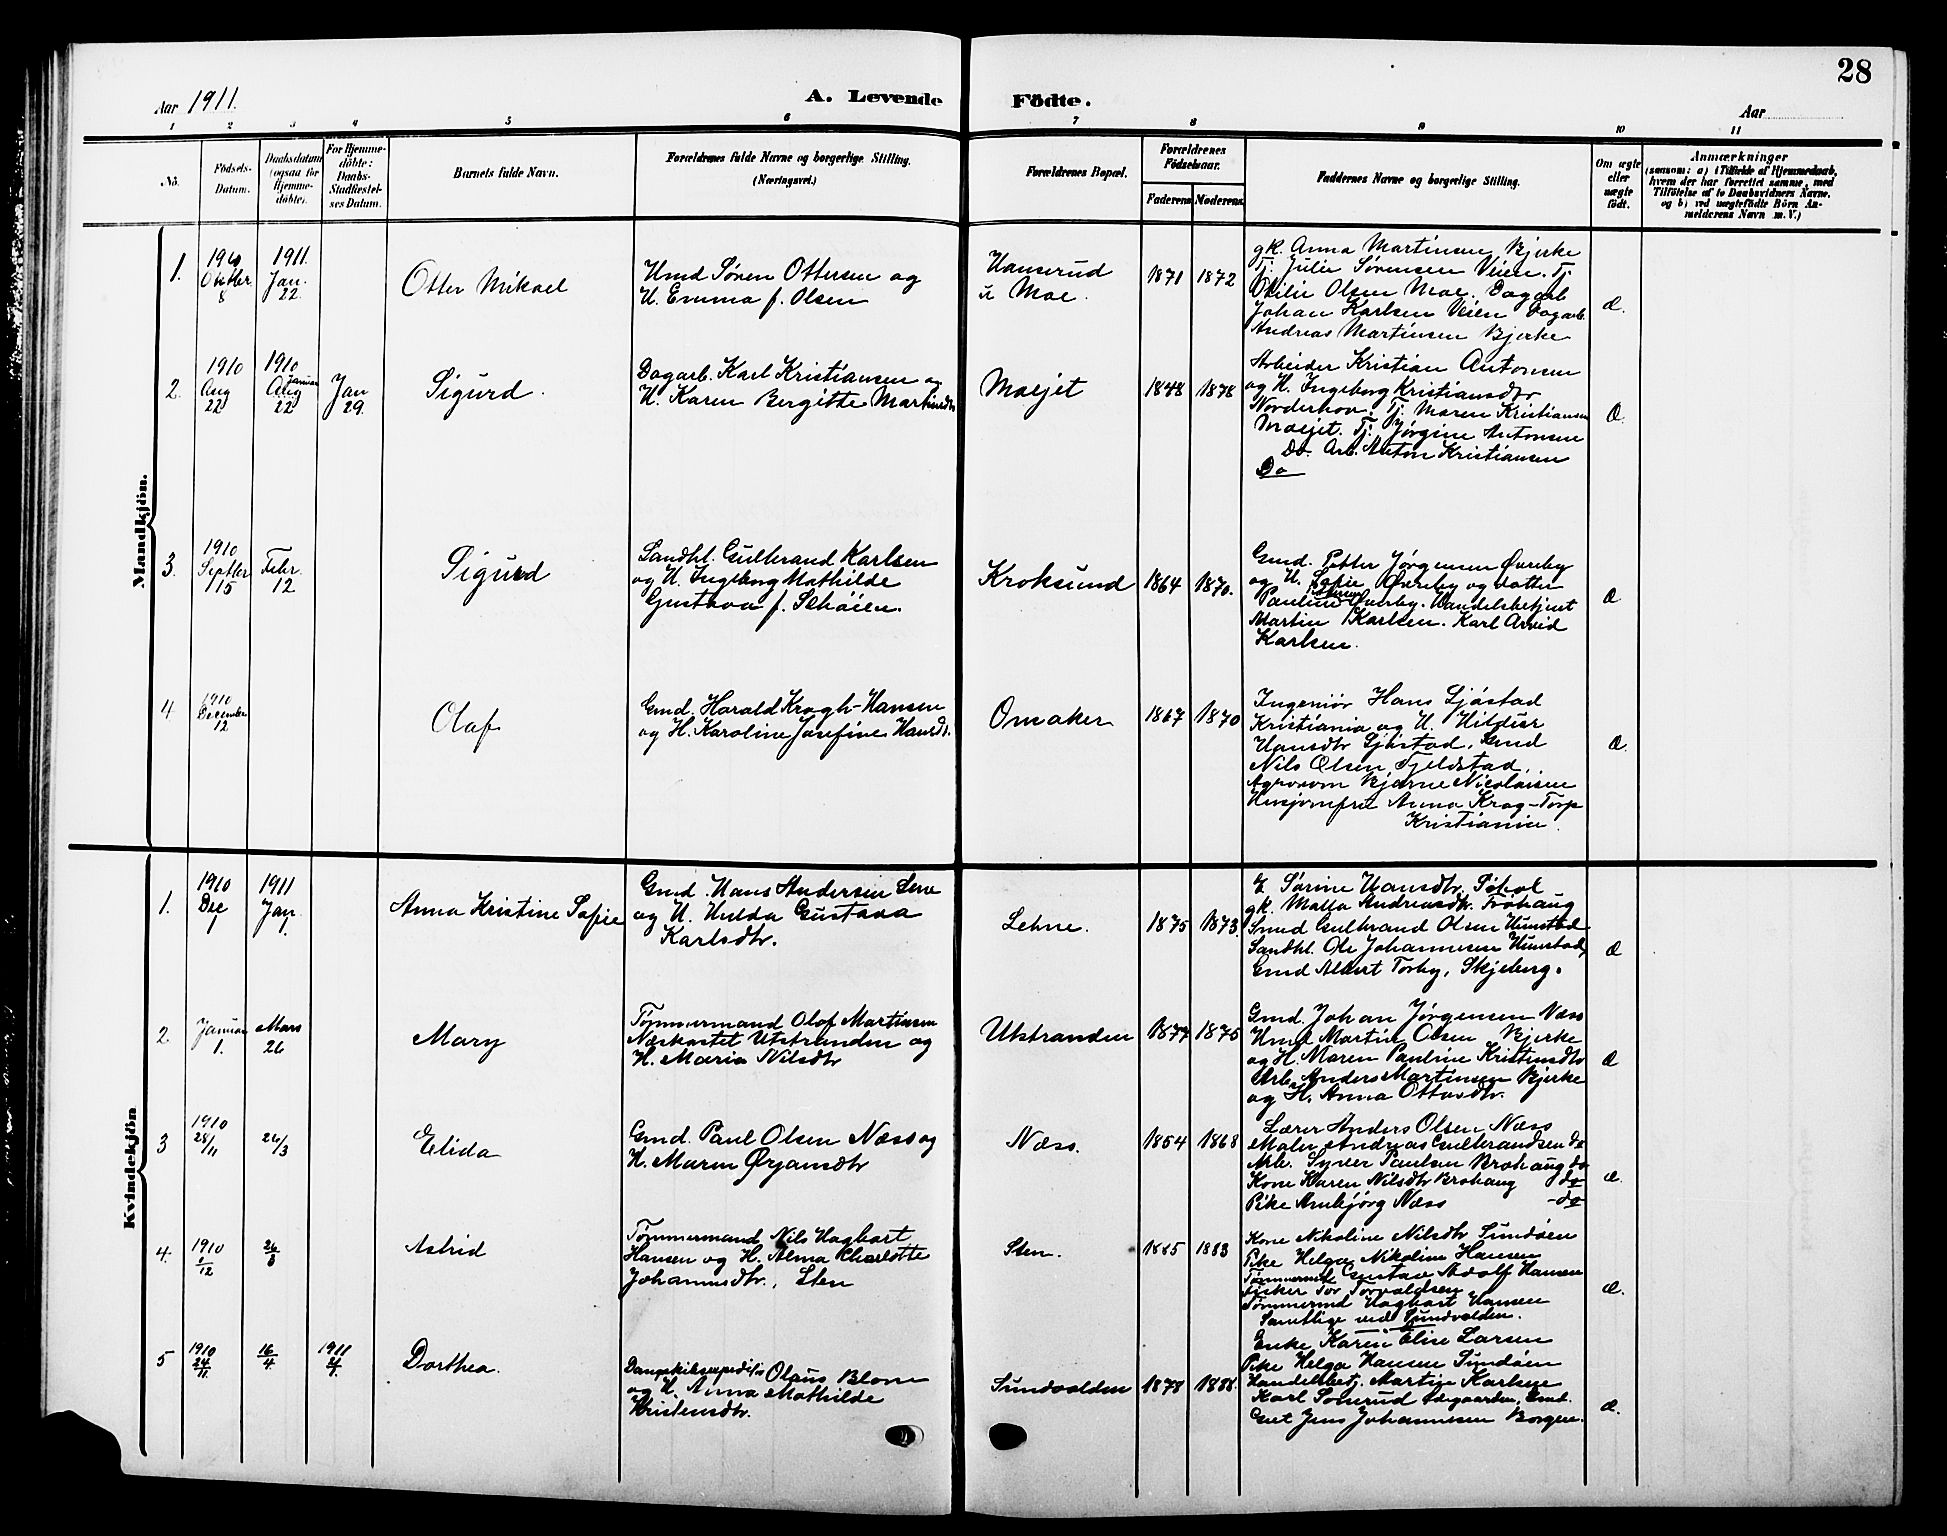 28
Aar 1911.
A. Levende Födte.
Aar
1 2 3 4 5 6 7 8 9 10 11
No.
Födsels-
Datum.
Daabsdatum
(ogsaa for
Hjemme-
döbte).
For Hjemme-
döbte:
Daabs-
Stadfæstel-
ses Datum.
Barnets fulde Navn.
Forældrenes fulde Navne og borgerlige Stilling.
(Næringsvei.)
Forældrenes Bopæl.
Forældrenes
Födselsaar.
Faderens Moderens
Faddernes Navne og borgerlige Stilling.
Om ægte
eller
uægte
födt.
Anmærkninger
(saasom: a) i Tilfælde af Hjemmedaab,
hvem der har forrettet samme, med
Tilföielse af to Daabsvidners Navne,
og b) ved uægtefödte Börn An-
melderens Navn m.V.)
Mandkjön.
1.
1910
Oktbr.
8
1911.
Jan.
22.
Otter Mikael
Hmd Søren Ottersen og
H. Emma f. Olsen
Hanserud
u Moe.
1871 1872
gk. Anna Martinsen Bjerke
Tj. Julie Sørensen Veien. Tj
Otilie Olsen Moe. Dagarb
Johan Karlsen Veien Dagarb.
Andreas Martinsen Bjerke
Æ.
2.
1910
Aug
22
1910
Aug
Januar
22
Jan
29.
Sigurd.
Dagarb. Karl Kristiansen og
H. Karen Bergitte Martinsdtr
Moejet
1848 1878
Arbeider Kristian Antonsen
og H. Ingeborg Kristiansdtr
Norderhov. Tj. Maren Kristiansen
Moejet. Tj. Jørgine Antonsen
Do. Arb. Anton Kristiansen
Do
Æ.
3.
1910
Septbr
15
Febr.
12
Sigurd
Landhl. Gulbrand Karlsen
og H. Ingeborg Mathilde
Gustava f. Schøien.
Kroksund
1864 1870.
Gmd. Petter Jørgensen Øverby
og H. Sofie Øverby og datter
Pauline Øverby. Handelsbetjent
Martin Karlsen. Karl Arvid
Karlsen.
Æ
4
1910
December
12
Olaf
Gmd. Harald Kragh-Hansen
og H. Karoline Josefine Hansdtr.
Onsaker
1867 1870
Ingeniør Hans Sjøstad
Kristiania og H. Hildur
Hansdtr Sjøstad, Gmd
Nils Olsen Fjeldstad,
Agronom Bjarne Nicolaisen
Husjomfru Anna Krag-Torp
Kristiania.
Æ.
Kvindekjön
1.
1910
Dec
1911
Jan
Anna Kristine Sofie
Gmd. Hans Andersen Lene
og H. Hulda Gustava
Karlsdtr.
Lehne.
1875 1873.
E. Sørine Hansdtr. Søhol
gk. Malla Andreasdtr. Frøhaug
Smed Gulbrand Olsen Hunstad
Landhl. Ole Johannesen Hunstad,
Gmd Albert Torby, Skjeberg.
Æ
2.
Januar
1.
Mars
26
Mary
Tømmermand Olof Martinsen
Næskastet Utstranden og
H. Maria Nilsdtr
Utstranden
1877 1875
Gmd. Johan Jørgensen Næss
Hmd Martin Olsen Bjerke
og H. Maren Pauline Kristensdtr
Arb. Anders Martinsen Bjerke
og H. Anna Ottosdtr.
Æ
3
1910
28/11
26/3
Elida
Gmd. Paul Olsen Næss og
H. Maren Ørjansdtr
Næss.
1854 1868
Lærer Anders Olsen Næss
Maler Andreas Gulbrandsen do
Arb. Syver Paulsen Brohaug do
Kone Karen Nilsdtr Brohaug do
Pike Anbjørg Næss -do
Æ.
4.
1910
2/12
26/3
Astrid
Tømmermand Nils Hagbart
Hansen og H. Alma Charlotte
Johannesdtr., Sten
Sten.
1885 1883
Kone Nikoline Nilsdtr Sundøen
Pike Helga Nikoline Hansen
Tømmermd Gustav Adolf Hansen
Fisker Tor Torvaldsen
Tømmermd Hagbart Hansen
Samtlige ved Sundvolden.
Æ.
5
1910
24/11
16/4.
1911
Dorthea.
Dampskibsexpeditør Olaus Blom
og H. Anna Mathilde
Kristensdtr.
Sundvolden
1878 1888.
Enke Karen Elise Larsen
Pike Helga Hansen Sundøen
Handelsbetj. Martin Karlsen
Karl Sonerud
Gut Jens Johannesen Borgen.
Æ.